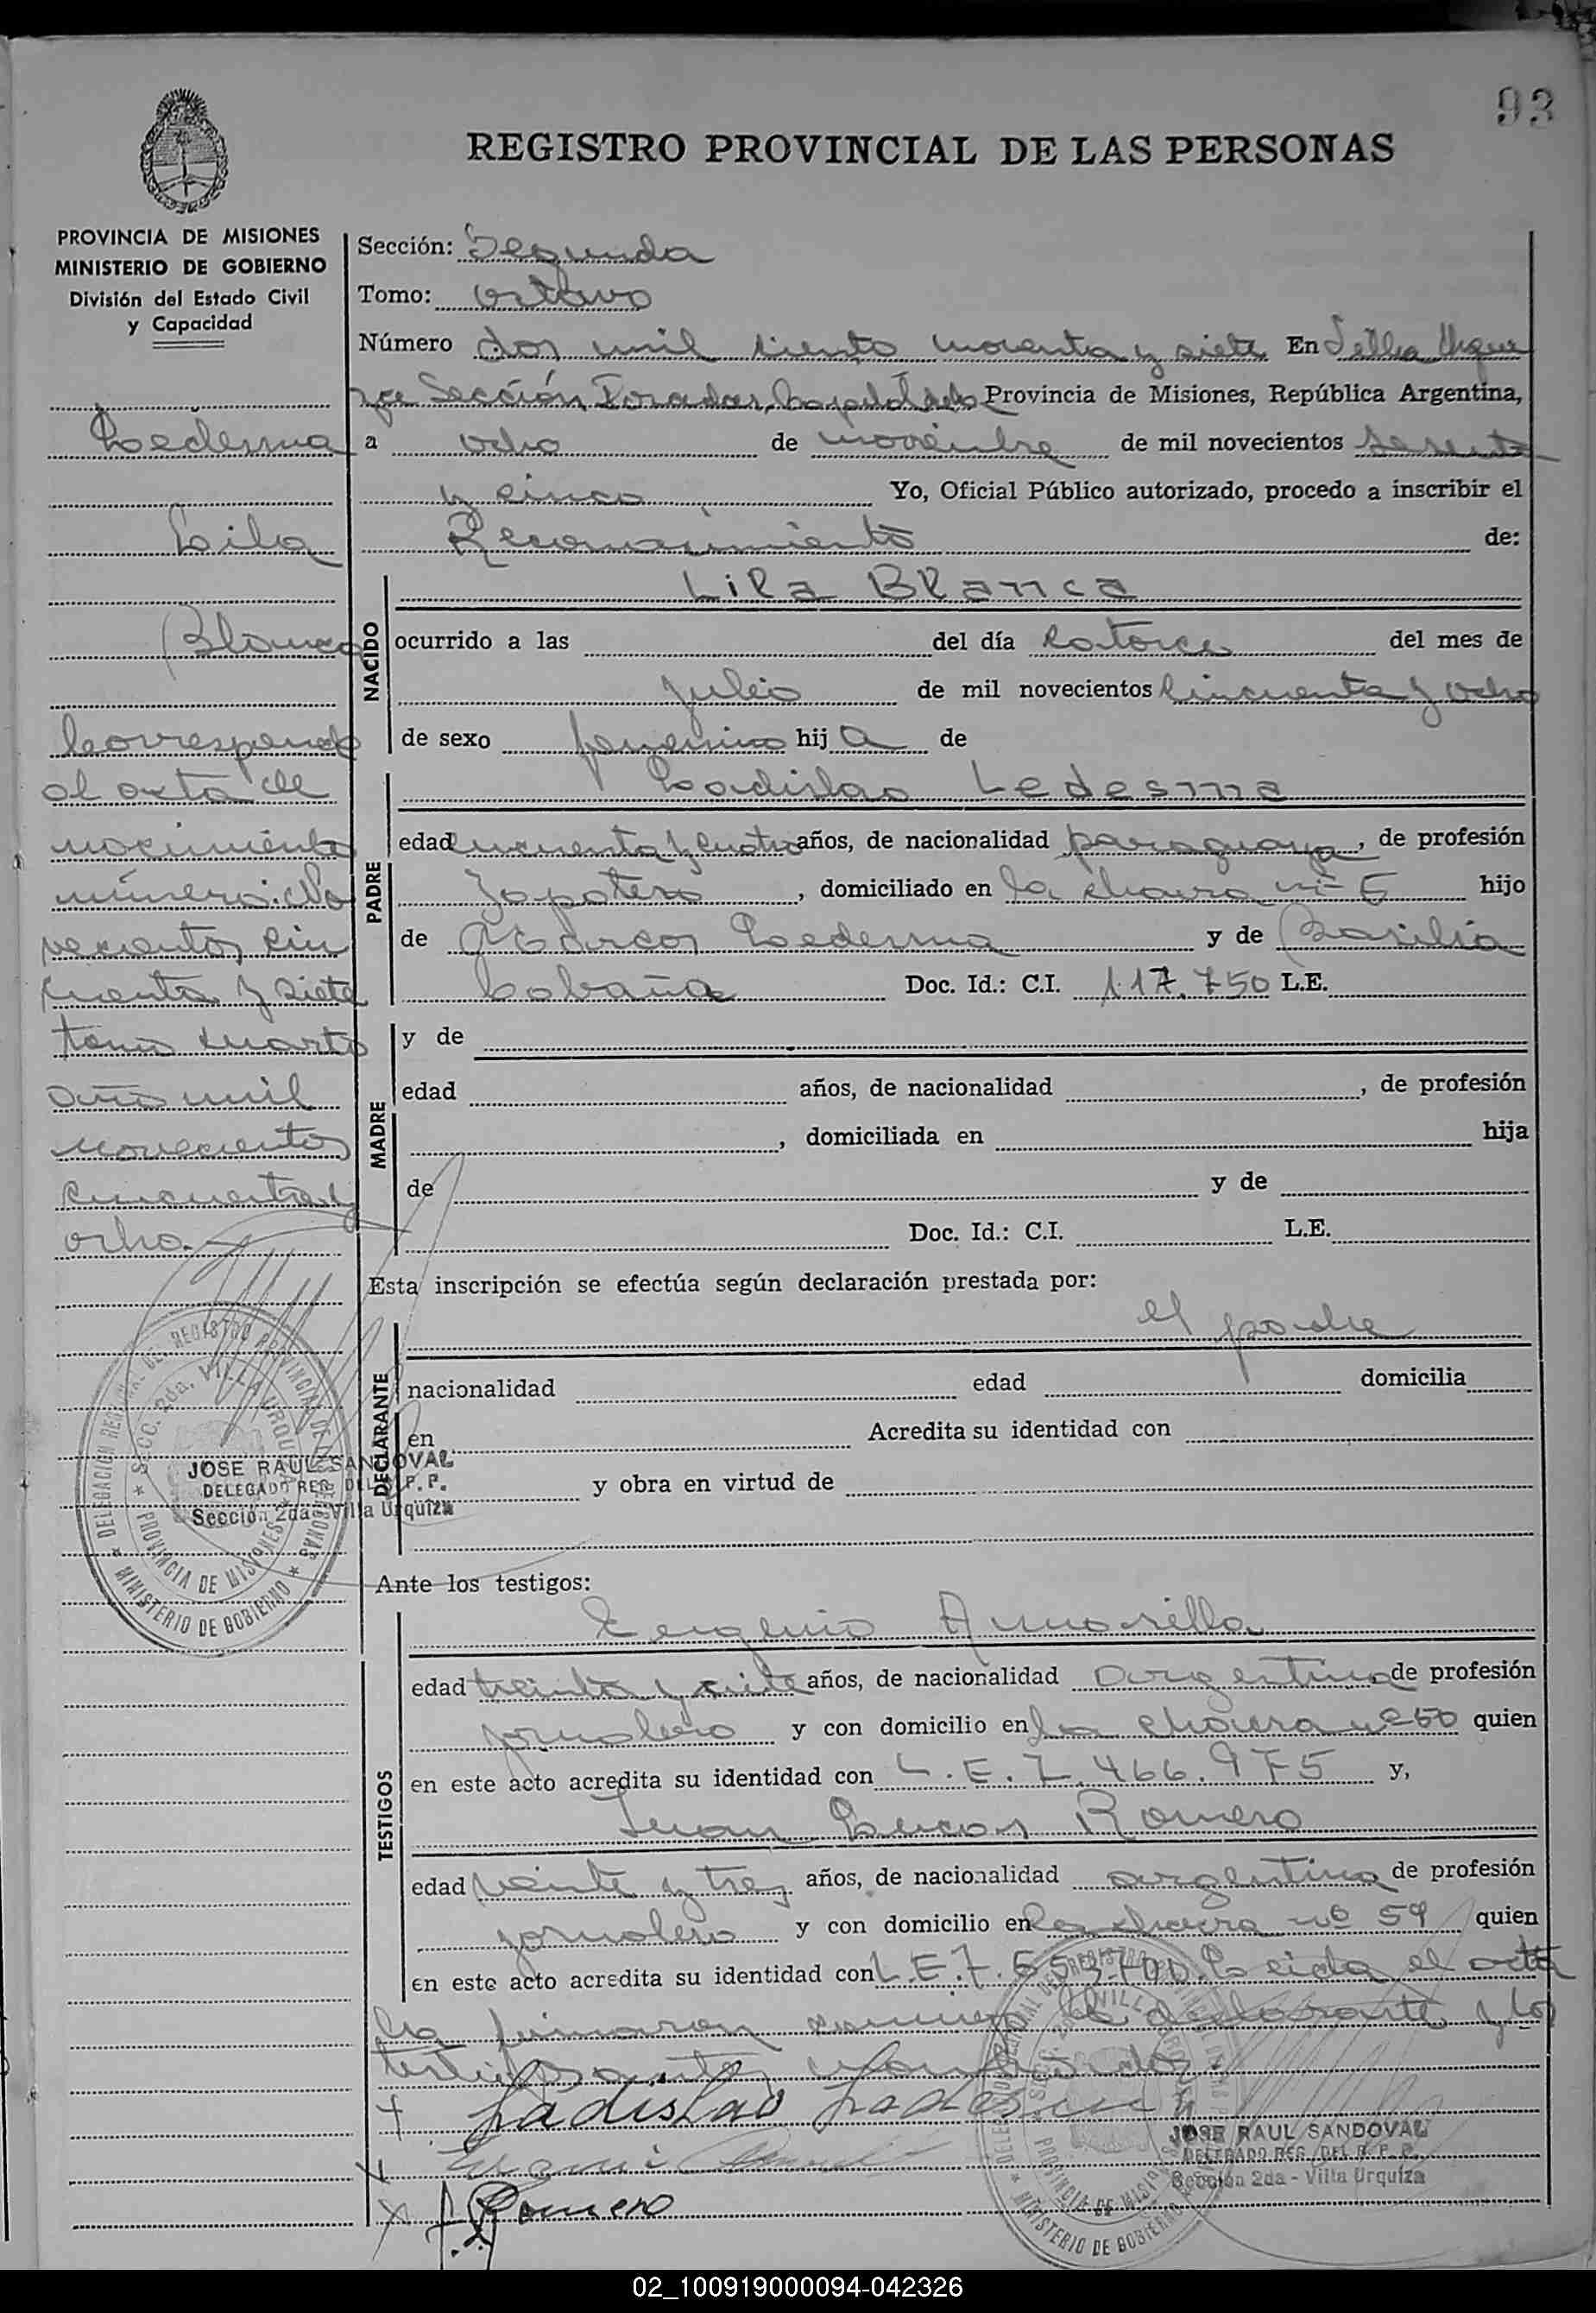 93
REGISTRO PROVINCIAL DE LAS PERSONAS
PROVINCIA DE MISIONES
MINISTERIO DE GOBIERNO
División del Estado Civil
y Capacidad
Ledesma
Lila
Blanca
Corresponde
al acta de
nacimiento
número: No
vecientos cin
cuenta y siete
tomo cuarto
año mil
novecientos
cincuenta y
ocho.
Sección: Segunda
Tomo: octavo
Número dos mil ciento noventa y siete En Villa Urqui
za Sección Posadas, Capital de la Provincia de Misiones, República Argentina,
a ocho de noviembre de mil novecientos sesenta
y cinco Yo, Oficial Público autorizado, procedo a inscribir el
Reconocimiento de:
NACIDO
Lila Blanca
ocurrido a las del día catorce del mes de
julio de mil novecientos cincuenta y ocho
de sexo femenino hija de
PADRE
Ladislao Ledesma
edad cincuenta y cuatro años, de nacionalidad paraguaya, de profesión
Zapatero, domiciliado en la chacra nº 6 hijo
de Marcos Ledesma y de Basilia
Cabaña Doc. Id.: C.I. 117.750 L.E.
MADRE
y de
edad años, de nacionalidad , de profesión
, domiciliada en hija
de y de
Doc. Id.: C.I. L.E.
Esta inscripción se efectúa según declaración prestada por:
DECLARANTE
el padre
nacionalidad edad domicilia
en Acredita su identidad con
y obra en virtud de
DELEGACION REGIONAL DEL REGISTRO PROVINCIAL DE LAS PERSONAS
SECC. 2da. VILLA URQUIZA
PROVINCIA DE MISIONES
MINISTERIO DE GOBIERNO
JOSE RAUL SANDOVAL
DELEGADO REG. DEL R. P. P.
Sección 2da - Villa Urquiza
Ante los testigos:
TESTIGOS
Eugenio Amarilla
edad treinta y siete años, de nacionalidad argentina de profesión
jornalero y con domicilio en la chacra nº 60 quien
en este acto acredita su identidad con L.E.7.466.975 y,
Juan Lucas Romero
edad veinte y tres años, de nacionalidad argentina de profesión
jornalero y con domicilio en la chacra nº 59 quien
en este acto acredita su identidad con L.E.7.553.700. Leida el acta
la firmaron conmigo el declarante y los
testigos antes nombrados.
Ladislao Ledesma
Romero
JOSE RAUL SANDOVAL
DELEGADO REG. DEL R. P. P.
Sección 2da - Villa Urquiza
02_100919000094-042326